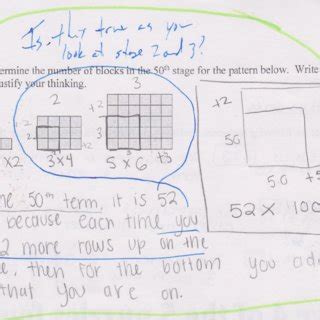 Is this true as you
look at stage 2 and 3?
ermine the number of blocks in the 50th stage for the pattern below. Write
ustify your thinking.
2
3
+2
+2
2
x2
3x4
5 x 6
+3
+2
50
50
+5
52 x 100
he 50th term, it is 52
because each time you
2 more rows up on the
e, then for the bottom you add
that you are on.